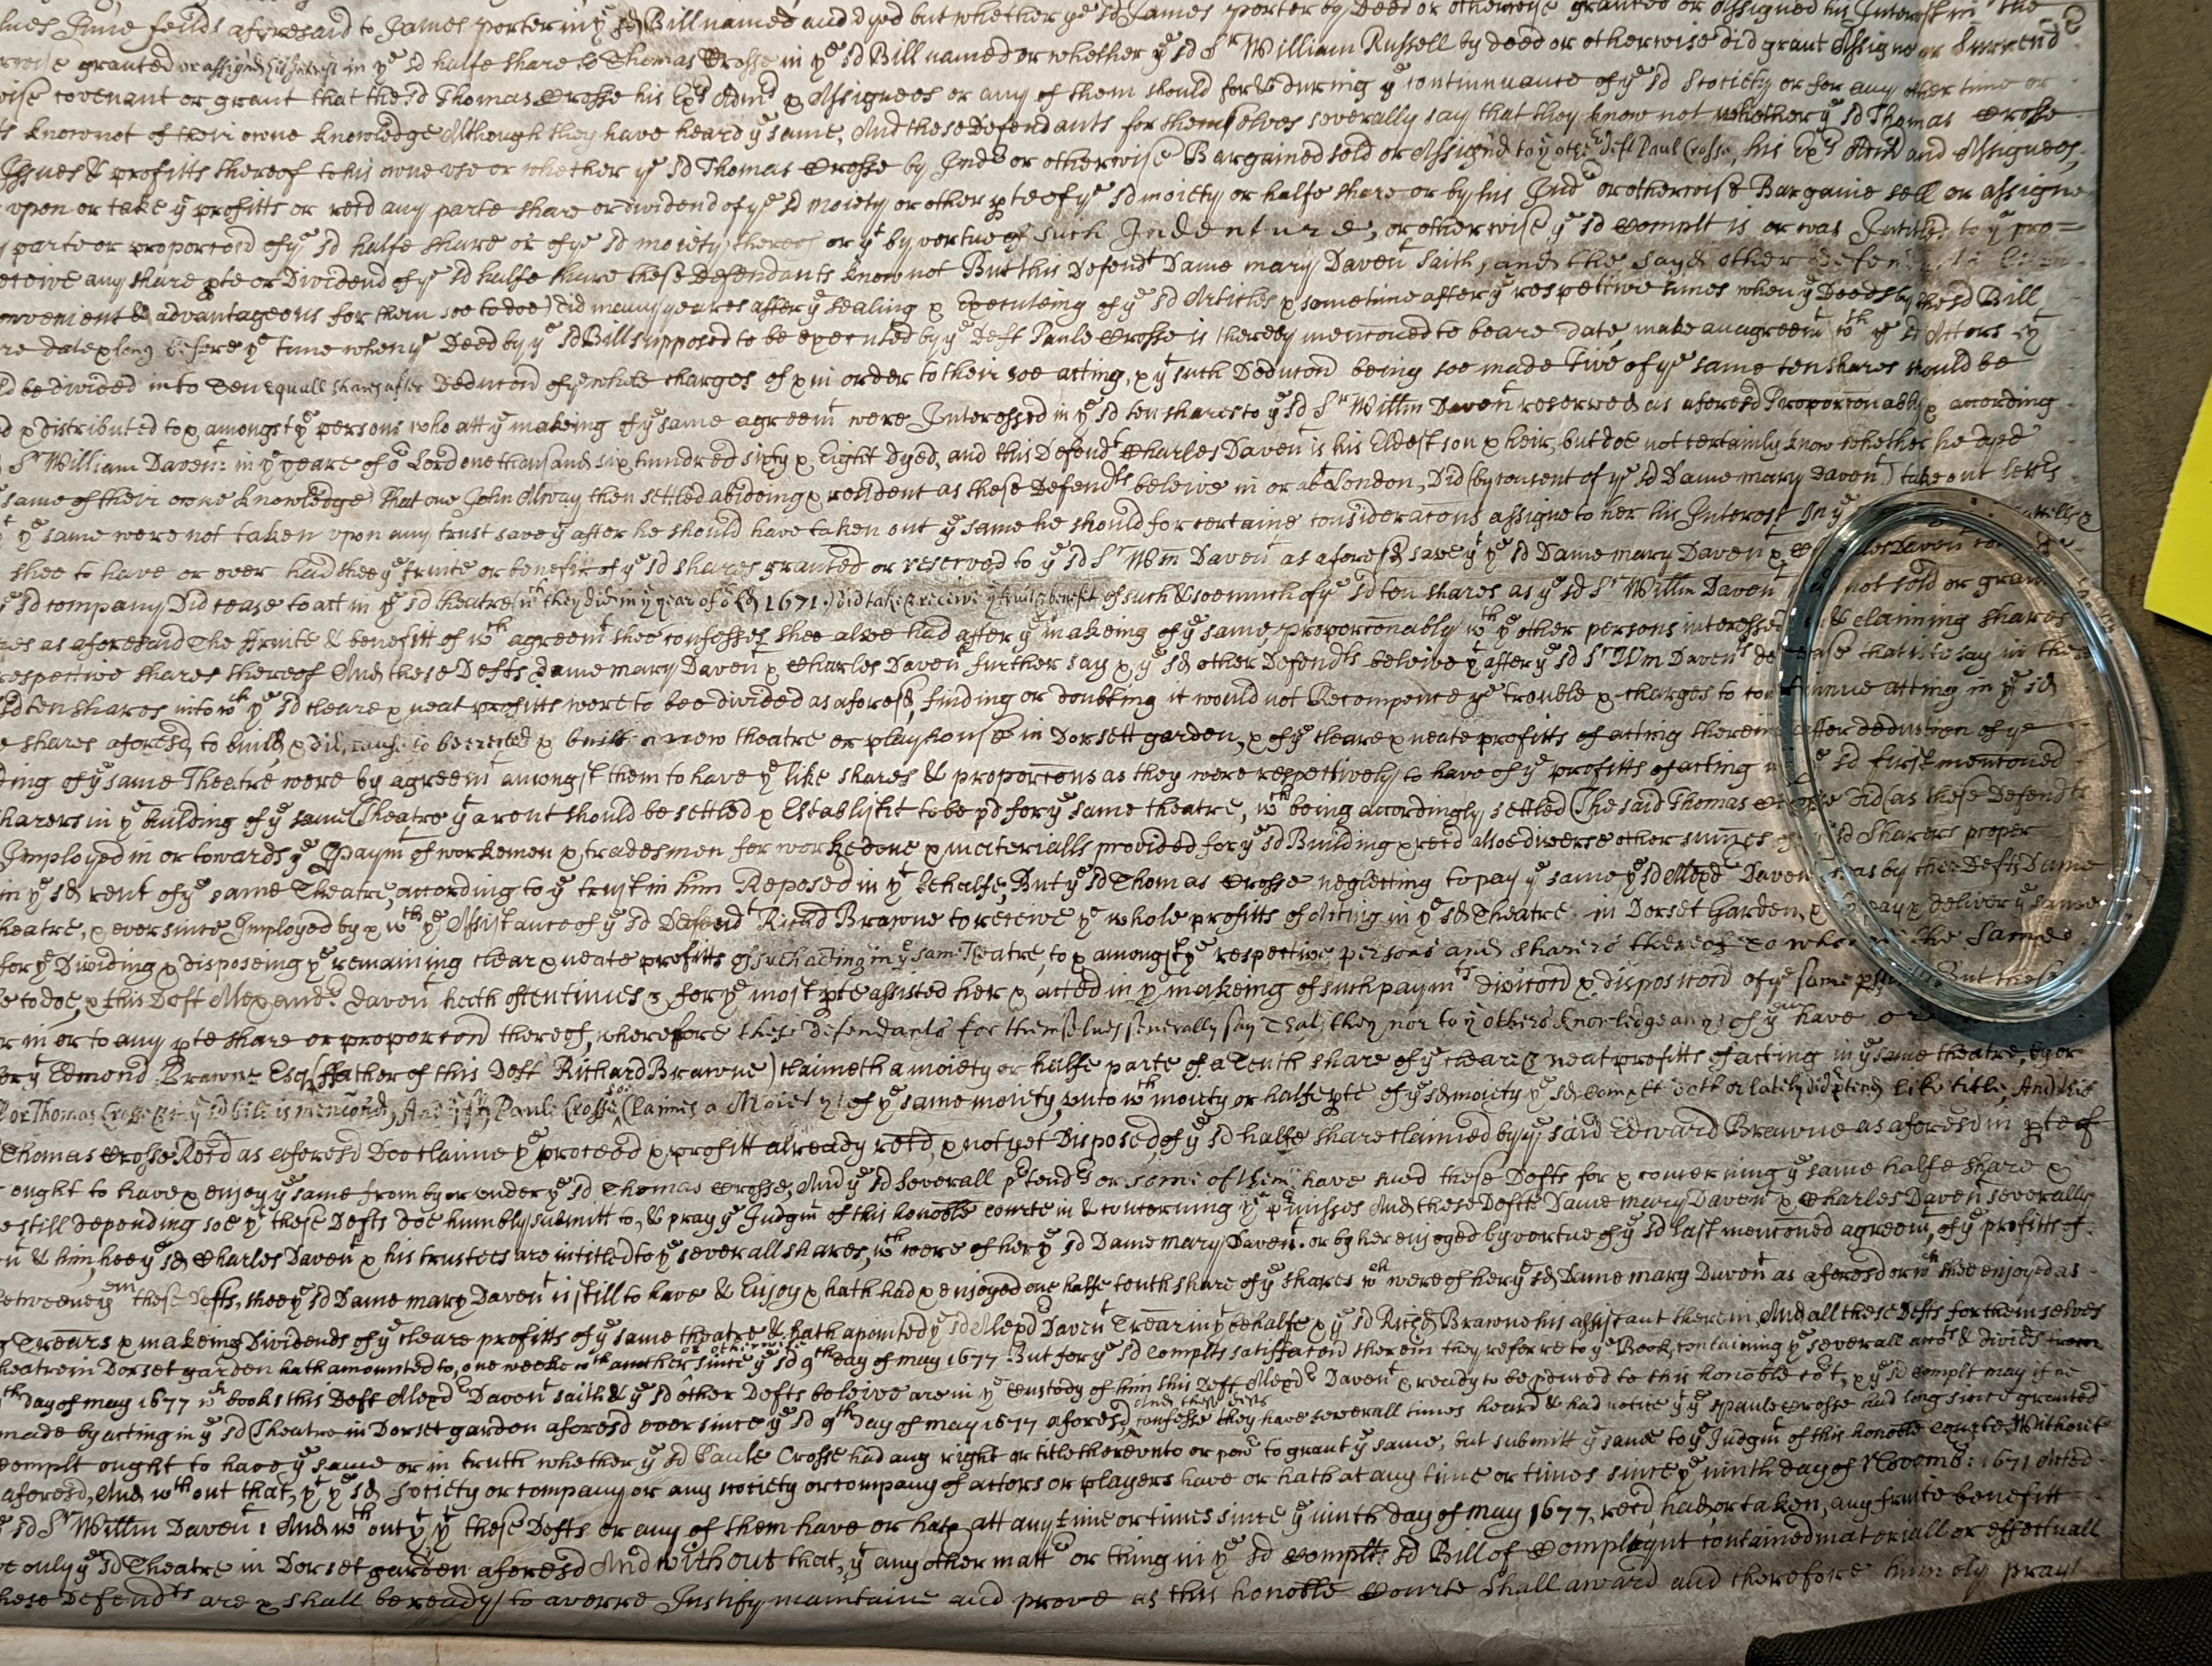 Lines Inne feilds aforesaid to James porter in yͤ sd Bill named and dyed but whether yͤ sd James porter by Deed or otherwise granted or Assigned his Interest in the
granted or assigned his Interest in yͤ sd halfe share to Thomas Crosse in yͤ sd Bill named or whether yͤ sd Sʳ William Russell by deed or otherwise did grant Assigne or Surrendʳ
wise covenant or grant that the sd Thomas Crosse his Exʳˢ Admʳˢ & Assignees or any of them should for & during yͤ continnuance of yͤ sd Society or for any other time or
know not of their owne knowledge Although they have heard yͤ same, And these Defendants for themselves severally say that they know not whether yͤ sd Thomas Crosse
Issues & profitts thereof to his owne use or whether yͤ sd Thomas Crosse by Indʳᵉ or otherwise Bargained sold or Assign'd to yͤ other Deft Paul Crosse, his Exʳˢ Admʳˢ and Assignees,
upon or take yͤ profitts or recd any parte share or dividend of yͤ sd moiety or other pte of yͤ sd moiety or halfe share or by his Indʳᵉ or otherwise Bargaine sell or assigne
parte or proporcōn of yͤ sd halfe share or of yͤ sd moiety thereof or yᵗ by vertue of such Indenture, or otherwise yͤ sd Complt is or was Intitled to yͤ pro=
receive any share pte or Dividend of yͤ sd halfe share these Defendants know not But this Defendᵗ Dame mary Davenᵗ saith, and the sayd other
convenient & advantageous for them soe to doe) did many yeares after yͤ sealing & Executeing of yͤ sd Articles & sometime after yͤ respective times when yͤ Deeds by the sd Bill
date & long before yͤ time when yͤ Deed by yͤ sd Bill supposed to be executed by yͤ Deft Paule Crosse is thereby mencōned to beare date, make an agreemᵗ wᵗʰ yͤ sd Actors yᵗ
be divided into Ten equall shares after Deduccōn of yͤ whole charges of & in order to their soe acting, & yᵗ such Deduccōn being soe made Five of yͤ same ten shares should be
& distributed to & amongst yͤ persons who att yͤ makeing of yͤ same agreemᵗ were Interessed in yͤ sd ten shares to yͤ sd Sʳ Willm Davenᵗ reserved as aforesd Proporcōnably & according
Sʳ William Davenᵗ: in yͤ yeare of oʳ Lord one thousand six hundred sixty & Eight dyed, and this Defendᵗ Charles Davenᵗ is his Eldest son & heir, but doe not certainly know whether he dyed
same of their owne knowledge) that one John Alway then settled abideing & resident as these Defendᵗˢ beleive in or att London, Did (by consent of yͤ sd Dame mary Davenᵗ) take out letʳˢ
yͤ same were not taken upon any trust save yᵗ after he should have taken out yͤ same he should for certaine consideracōns assigne to her his Interest In yͤ
shee to have or ever had shee yͤ fruite or benefit of yͤ sd shares granted or reserved to yͤ sd Sʳ Wm Davenᵗ as aforesd save yᵗ yͤ sd Dame mary Davenᵗ &
sd company Did cease to act in yͤ sd theatre (wᶜʰ they did in yͤ year of oʳ Ld 1671) did take & receive yͤ fruite & benefit of such & soe much of yͤ sd ten shares as yͤ sd Sʳ Willm Davenᵗ had not sold or
as aforesaid The ffruite & benefitt of wᶜʰ agreemᵗ shee confesses shee alsoe had after yͤ makeing of yͤ same, proporcōnably wᵗʰ yͤ other persons interessed in & claiming shares
respective shares thereof And these Defts Dame mary Davenᵗ & Charles Davenᵗ further say & yͤ sd other Defendᵗˢ beleive yᵗ after yͤ sd Sʳ Wm Davenᵗˢ decease that is to say in the
sd ten shares into wᶜʰ yͤ sd cleare & neat profitts were to bee divided as aforesd, finding or doubting it would not Recompence yͤ trouble & charges to continue acting in yͤ sd
shares aforesd, to build, & did cause to be erected & built a new theatre or playhouse in Dorsett garden, & of yͤ cleare & neate profitts of acting therein after deduction of yͤ
of yͤ same Theatre were by agreemᵗ amongst them to have yͤ like shares & proporcōns as they were respectively to have of yͤ profitts of acting sd first mencōned
sharers in yͤ building of yͤ same Theatre yᵗ a rent should be settled & Establisht to be pd for yͤ same theatre, wᶜʰ being accordingly settled The said Thomas Crosse did (as these Defendᵗˢ
Imployed in or towards yͤ Paymᵗ of workemen & tradesmen for worke done & materialls provided for yͤ sd Building & recd alsoe diverse other summes of sd Sharers proper
in yͤ sd rent of yͤ same Theatre, according to yͤ trust in him Reposed in yᵗ behalfe, But yͤ sd Thomas Crosse neglecting to pay yͤ same yͤ sd Alexdʳ Davenᵗ was by these Defts Dame
theatre, & ever since Imployed by & wᵗʰ yͤ Assistance of yͤ sd Defendᵗ Richd Brawne to receive yͤ whole profitts of Acting in yͤ sd Theatre in Dorset Garden, & pay & deliver yͤ same
for yͤ Dividing & disposeing yͤ remaining clear & neate profitts of such acting in yͤ same Theatre, to & amongst yͤ respective persons and sharers thereof to whome the same
to doe, & this Deft Alexandʳ Davenᵗ hath oftentimes & for yͤ most pte assisted her & acted in yͤ makeing of such paymᵗˢ division & disposicōn of yͤ same But these
in or to any pte share or proporcōn thereof, wherefore these defendants for themselves severally say That they nor to yͤ others knowledge any of yᵐ have or
Edmond Brawne Esqʳ (ffather of this Deft Richard Brawne) claimeth a moiety or halfe parte of a Tenth share of yͤ cleare & neat profitts of acting in yͤ same theatre, by or
or Thomas Crosse yͤ sd bill is mencōned, And yͤ sd Paule Crosse Claimes a Moiety of yͤ same moiety, unto wᶜʰ moiety or halfe pte of yͤ sd moiety yͤ sd Complt doth or lately did ptend like title, And this
Thomas Crosse Recd as aforesd Doe claime yͤ proceed & profitt already recd, & not yet Disposed, of yͤ sd halfe share claimed by yͤ said Edward Brawne as aforesd in pte of
ought to have & enjoy yͤ same from by or under yͤ sd Thomas Crosse, And yͤ sd severall ptendʳˢ or some of them have sued these Defts for & concerning yͤ same halfe share &
still depending soe yᵗ these Defts doe humbly submitt to, & pray yͤ Judgmᵗ of this honoble courte in & concerning yͤ pmisses And these Defts Dame mary Davenᵗ & Charles Davenᵗ severally
& him, hee yͤ sd Charles Davenᵗ & his trustees are intitled to yͤ severall shares, wᶜʰ were of her yͤ sd Dame mary Davenᵗ. or by her enjoyed by vertue of yͤ sd last mencōned agreemᵗ, of yͤ profitts of
betweene yᵐ these Defts, shee yͤ sd Dame mary Davenᵗ is still to have & Enjoy & hath had & enjoyed one halfe tenth share of yͤ shares wᶜʰ were of her yͤ sd Dame mary Davenᵗ as aforesd or wᶜʰ shee enjoyed as
Trears & makeing Dividends of yͤ cleare profitts of yͤ same theatre & hath apointed yͤ sd Alexd Davenᵗ Trear in yᵗ behalfe & yͤ sd Richd Brawne his assistant therein, And all these Defts for themselves
theatre in Dorset garden hath amounted to, one weeke wᵗʰ another or otherwise since yͤ sd 9ᵗʰ day of may 1677 But for yͤ sd Complts satisfaccōn therein they referre to yͤ Book, containing yͤ severall accᵗˢ & divids
ᵗʰ day of may 1677 wᶜʰ books this Deft Alexdʳ Davenᵗ saith & yͤ sd other Defts beleive are in yͤ Custody of him this Deft Alexdʳ Davenᵗ & ready to be pduced to this honoble coᵗ, & yͤ sd Complt may if he
made by acting in yͤ sd Theatre in Dorset garden aforesd ever since yͤ sd 9ᵗʰ day of may 1677 aforesd, And these Defts confesse they have severall times heard & had notice yᵗ yͤ sd paule Crosse had long since granted
Complt ought to have yͤ same or in truth whether yͤ sd Paule Crosse had any right or title thereunto or powʳ to grant yͤ same, but submitt yͤ same to yͤ Judgmᵗ of this honoble Courte, Without
aforesd, And wᵗʰout that, yᵗ yͤ sd Society or company or any society or company of actors or players have or hath at any time or times since yͤ ninth day of Novembʳ: 1671 Acted
sd Sʳ Willm Davenᵗ: And wᵗʰ out yᵗ, yᵗ these Defts or any of them have or hath att any time or times since yͤ ninth day of may 1677, recd had, or taken, any fruite benefitt
only yͤ sd Theatre in Dorset garden aforesd And without that, yᵗ any other mattʳ or thing in yͤ sd Complts sd Bill of Complaynt contained materiall or effectuall
these Defendᵗˢ are & shall be ready to averre Justify maintaine and prove as this honoble Courte shall award and therefore humbly pray